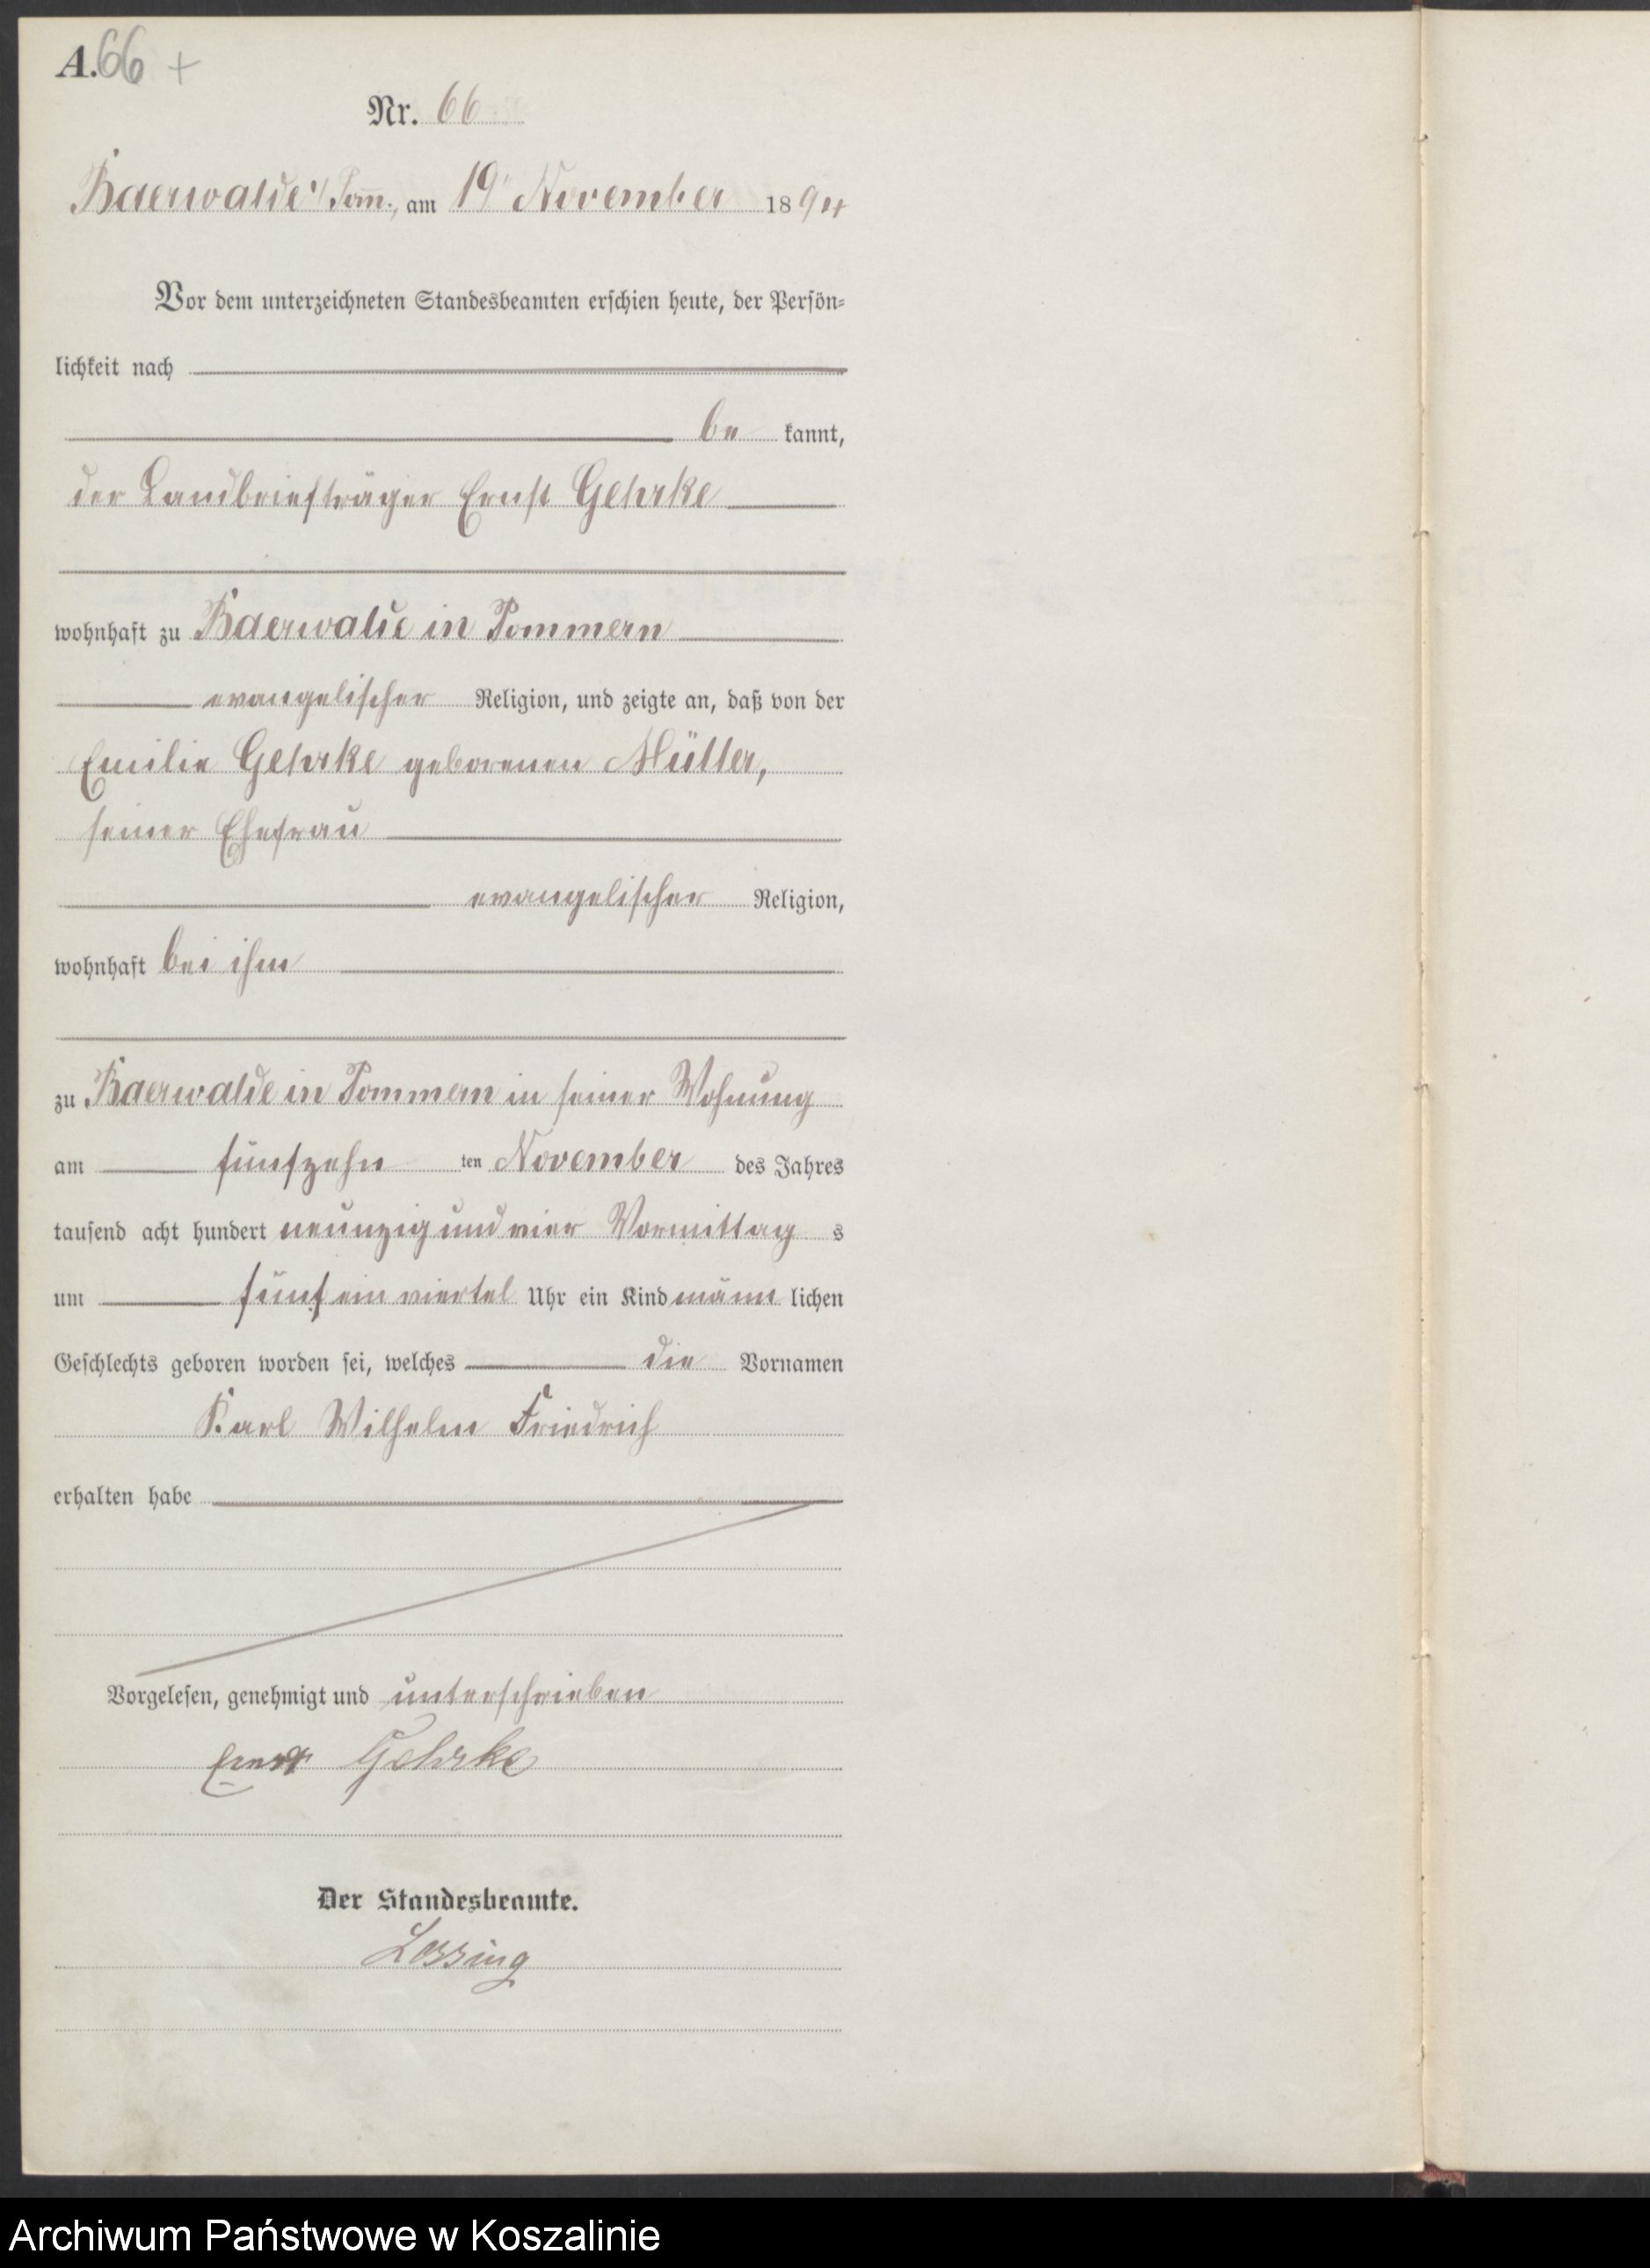 A. 66 +
Nr. 66
Baerwalde i/Pomm., am 19 November 1894
Vor dem unterzeichneten Standesbeamten erschien heute, der Persön=
lichkeit nach
be kannt,
der Landbriefträger Ernst Gehrke
wohnhaft zu Baerwalde in Pommern
evangelischer Religion, und zeigte an, daß von der
Emilie Gehrke geborenen Müller,
seiner Ehefrau
evangelischer Religion,
wohnhaft bei ihm
zu Baerwalde in Pommern in seiner Wohnung
am fünfzehn ten November des Jahres
tausend acht hundert neunzig und vier Vormittag s
um fünf ein viertel Uhr ein Kind männ lichen
Geschlechts geboren worden sei, welches die Vornamen
Karl Wilhelm Friedrich
erhalten habe
Vorgelesen, genehmigt und unterschrieben
Ernst Gehrke
Der Standesbeamte.
Lessing
Archiwum Państwowe w Koszalinie